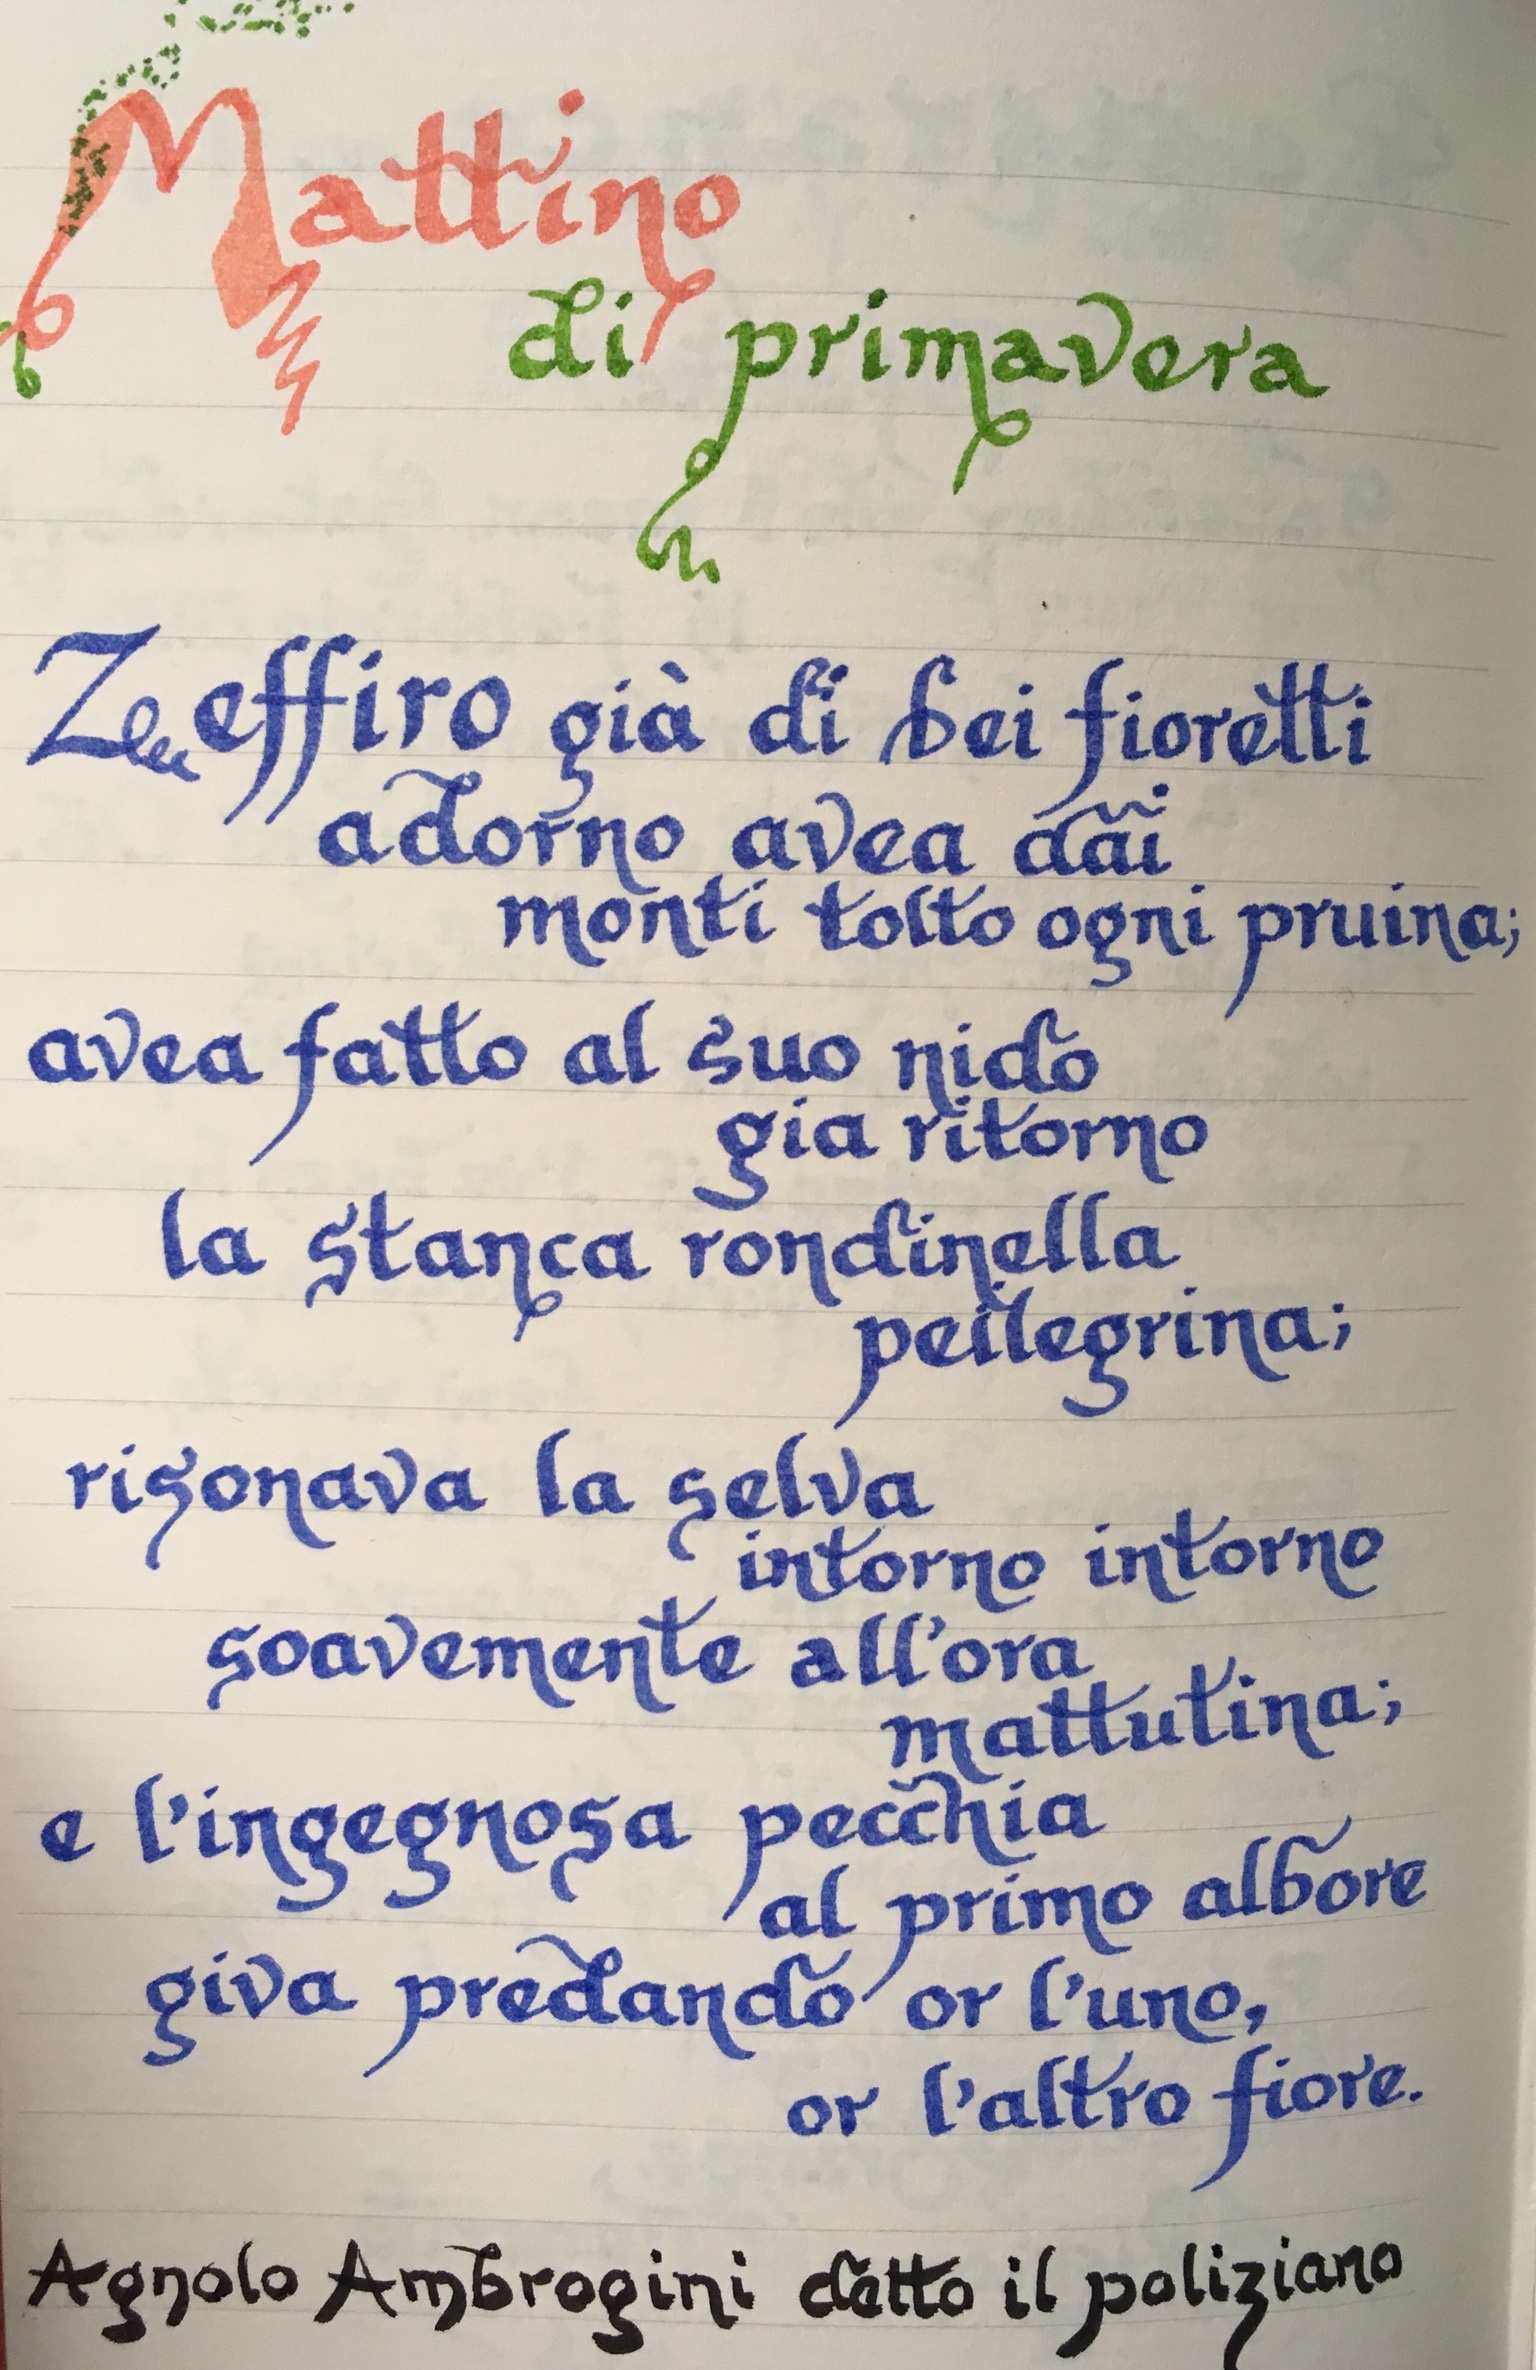 Mattino
di primavera
Zeffiro già di bei fioretti
adorno avea dai
monti tolto ogni pruina;
avea fatto al suo nido
gia ritorno
la stanca rondinella
pellegrina;
risonava la selva
intorno intorno
soavemente all'ora
mattutina;
e l'ingegnosa pecchia
al primo albore
giva predando or l'uno,
or l'altro fiore.
Agnolo Ambrogini detto il poliziano